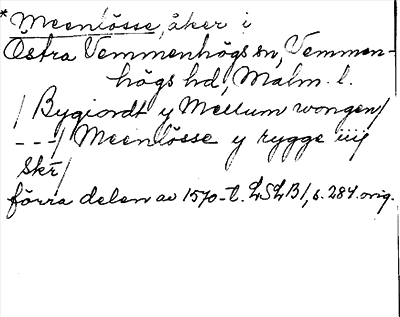 * Meenlösse, åker i
Östra Vemmenhögs sn, Vemmen-
högs hd, Malm. l.
/ Bygiordt y Mellum wongen/
---/ Meenlösse y rygge iiij
Skr/
förra delen av 1570-t. LSLB1, s. 284. orig.